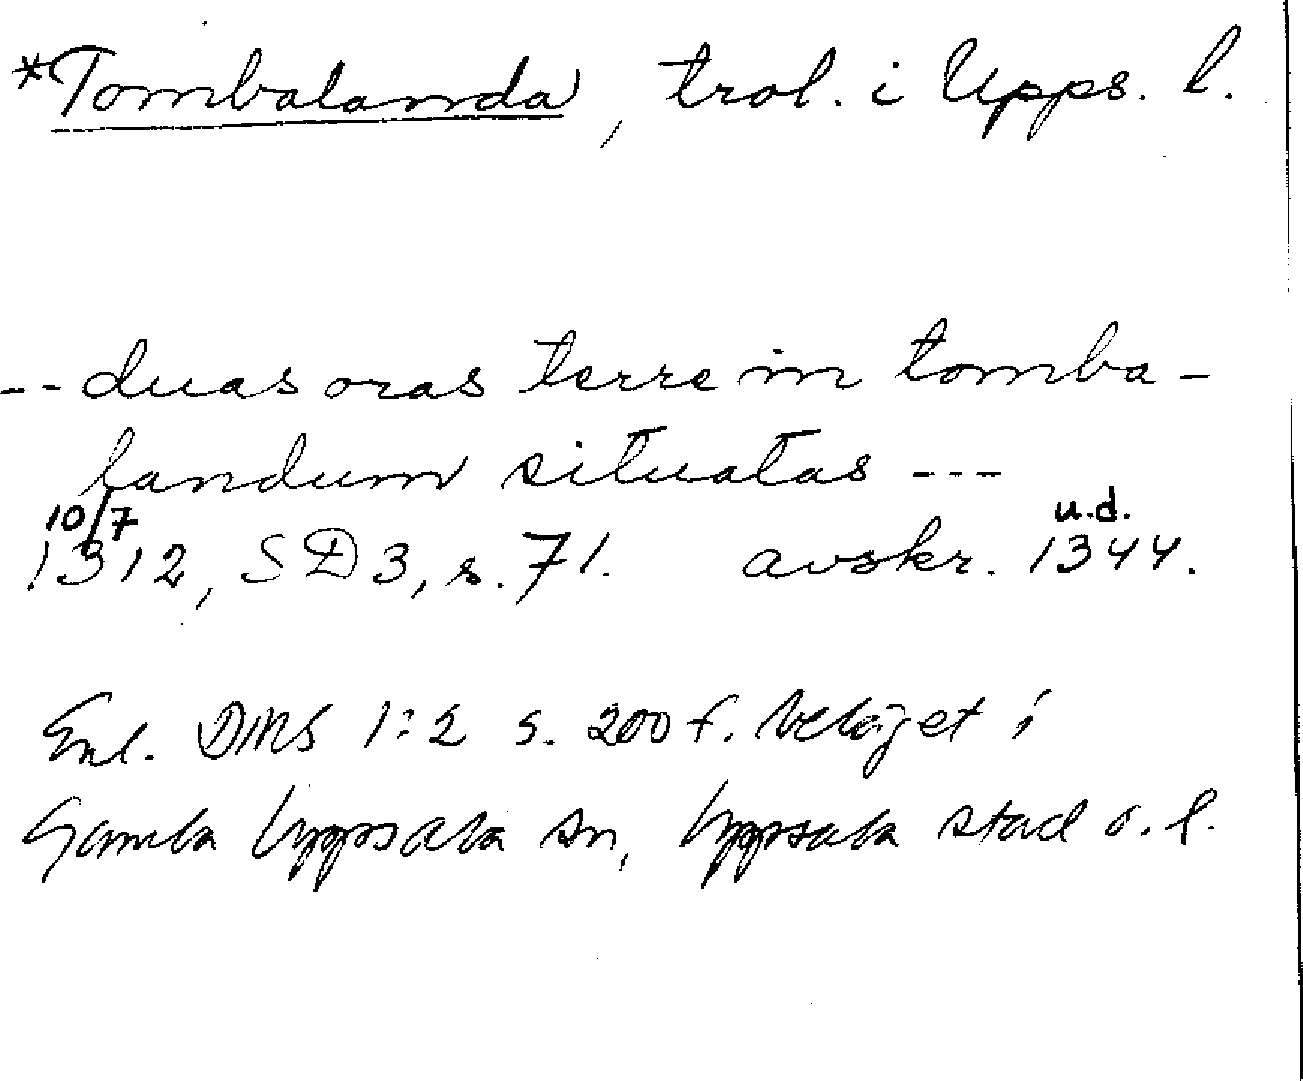 *Tombalanda, trol. i Upps. l.
-- duas oras terre in tomba-
landum situatas ---
10/7 u.d.
1312, SD 3, s. 71. avskr. 1344.
Enl. DMS 1:2 s. 200 f. beläget i
Gamla Uppsala sn, Uppsala stad o. l.